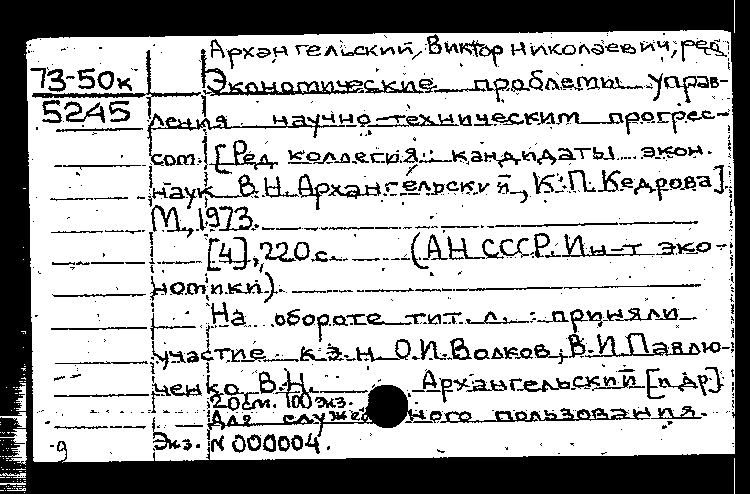 Архангельский, Виктор Николаевич, ред.
73-50к
5245
Экономические проблемы управ-
ления научно-техническим прогрес-
сом. [Ред. коллегия: кандидаты экон.
наук В.Н. Архангельский, К.П. Кедрова].
М., 1973.
[4], 220 с. (АН СССР. Ин-т эко-
номики).
На обороте тит. л. : приняли
участие к.э.н. О.И. Волков, В.И. Павлю-
ченко, В.Н. Архангельский [и др]
20 см. 100 экз.
Для служебного пользования.
Экз. N 000004.
9